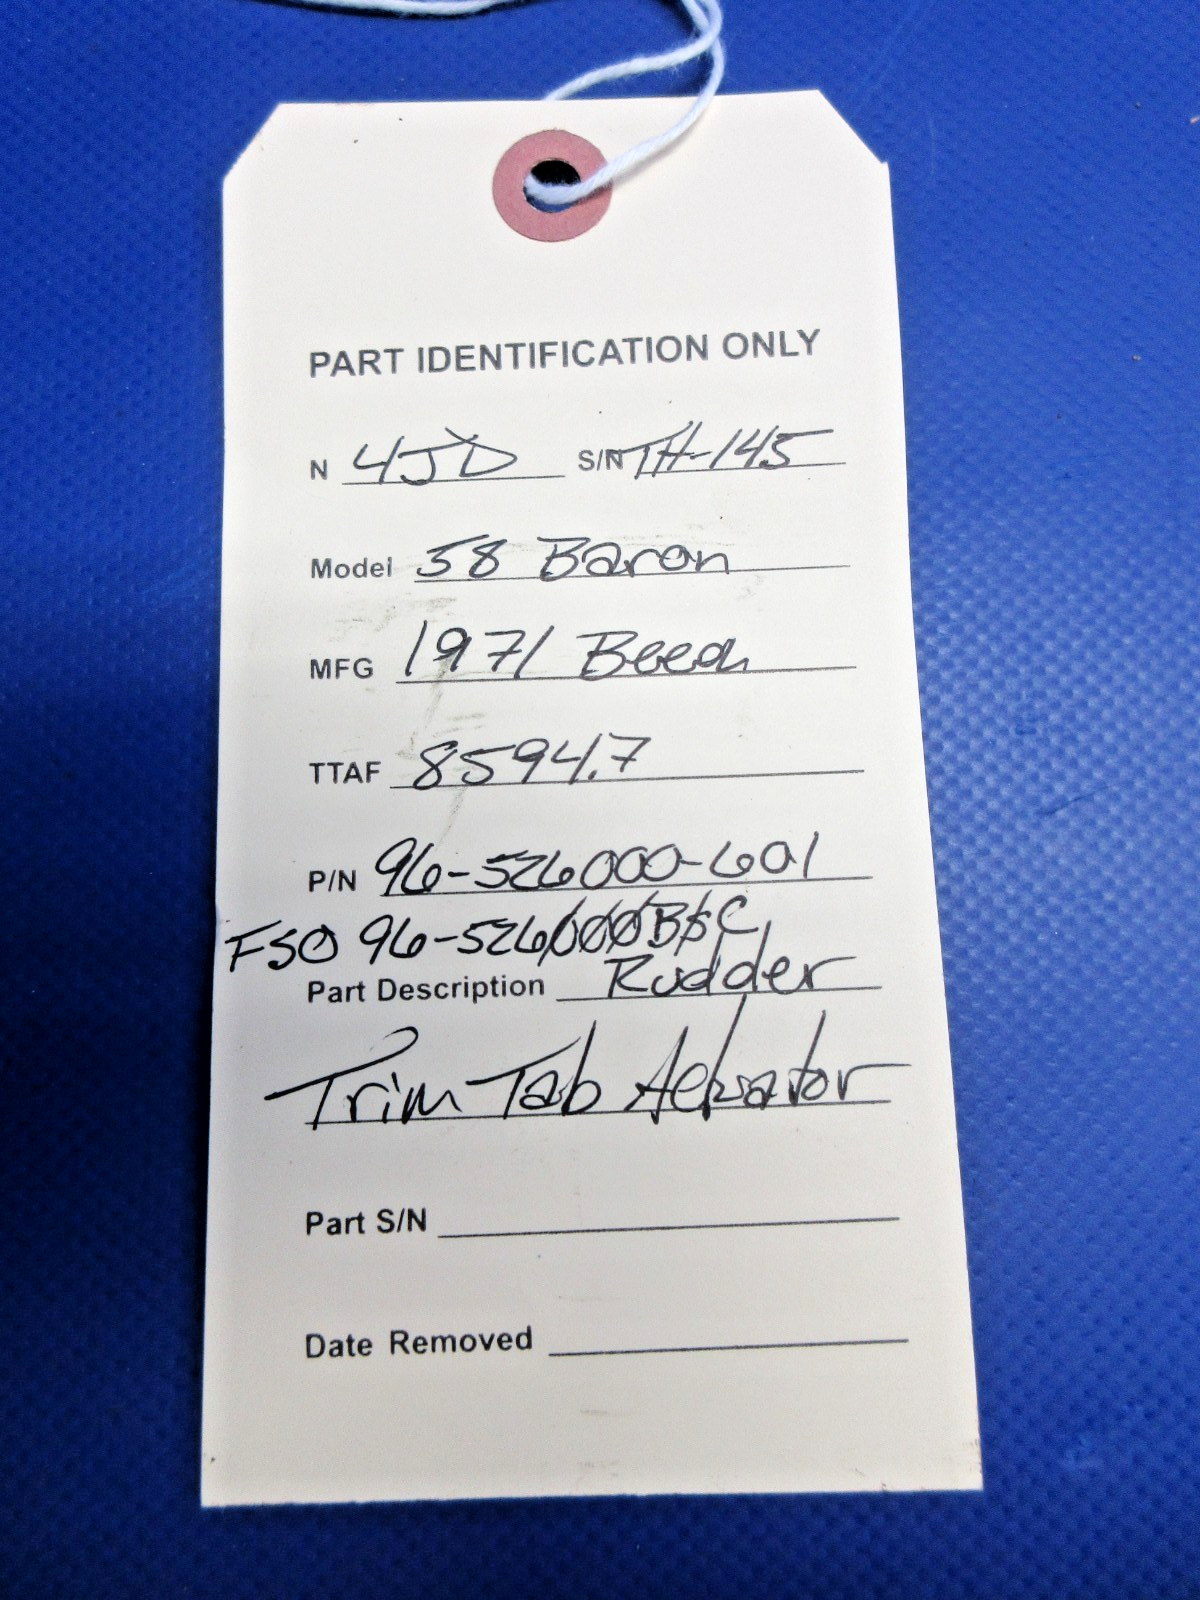 PART IDENTIFICATION ONLY
N 4JD S/N TH-145
Model 58 Baron
MFG 1971 Beech
TTAF 8594.7
P/N 96-526000-601
FSO 96-526000BSC
Part Description Rudder
Trim Tab Actuator
Part S/N
Date Removed